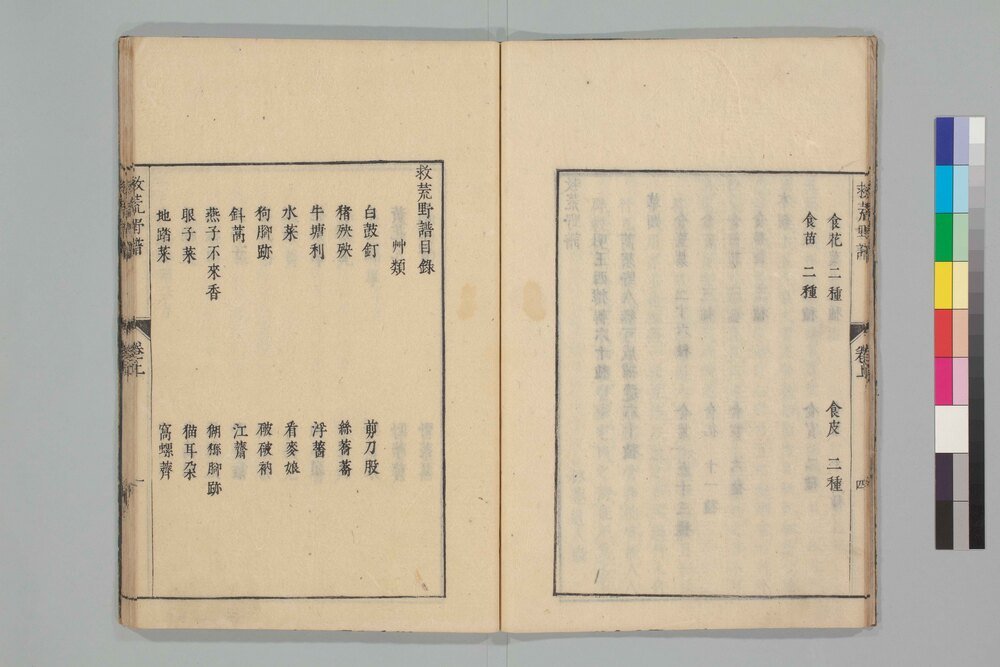 食花 二種
食皮 二種
食苗 二種
四
救荒野譜
卷上
救荒野譜目錄
艸類
白鼓釘
剪刀股
猪殃殃
絲蕎蕎
牛塘利
浮薔
水菜
看麥娘
狗腳跡
破破衲
斜蒿
江薺
燕子不來香
猢猻腳跡
眼子菜
猫耳朶
地踏菜
窩螺薺
救荒野譜
卷上
一